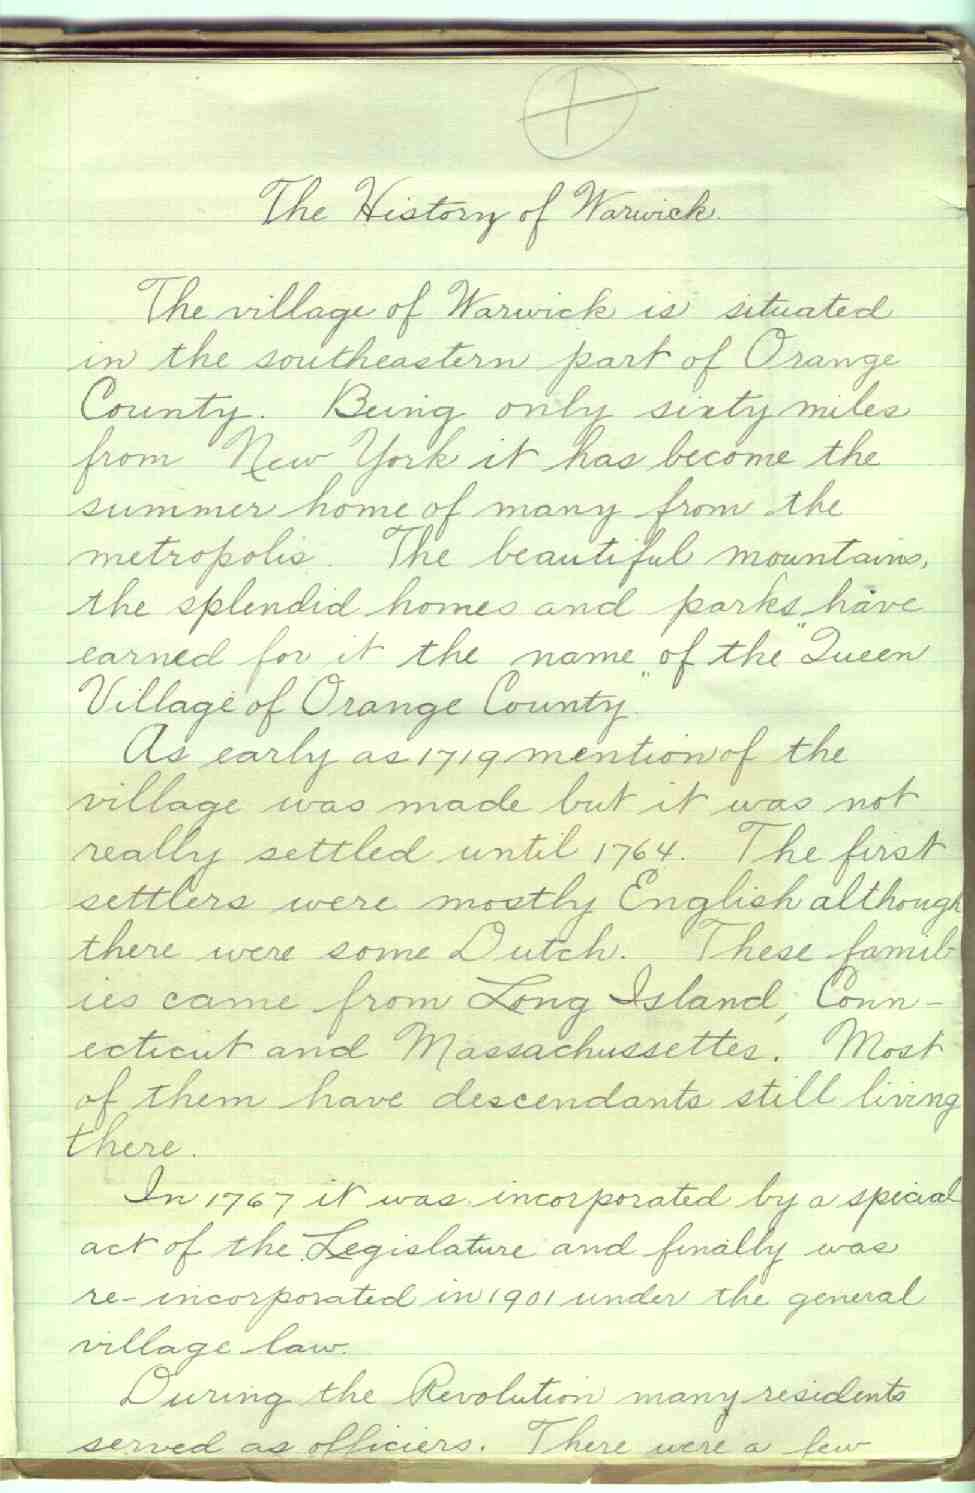 The History of Warwick.
The village of Warwick is situated
in the southeastern part of Orange
County. Being only sixty miles
from New York it has become the
summer home of many from the
metropolis. The beautiful mountains,
the splendid homes and parks have
earned for it the name of the "Queen
Village of Orange County."
As early as 1719 mention of the
village was made but it was not
really settled until 1764. The first
settlers were mostly English although
there were some Dutch. These famil-
ies came from Long Island, Conn-
ecticut and Massachussettes. Most
of them have descendants still living
there.
In 1767 it was incorporated by a special
act of the Legislature and finally was
re-incorporated in 1901 under the general
village law.
During the Revolution many residents
served as officiers. There were a few